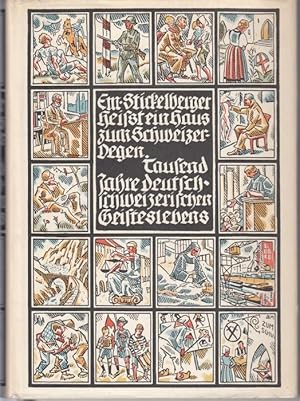 Em. Stickelberger
heißt ein Haus
zum Schweizer-
Degen
Tausend
Jahre deutsch-
schweizerischen
Geisteslebens